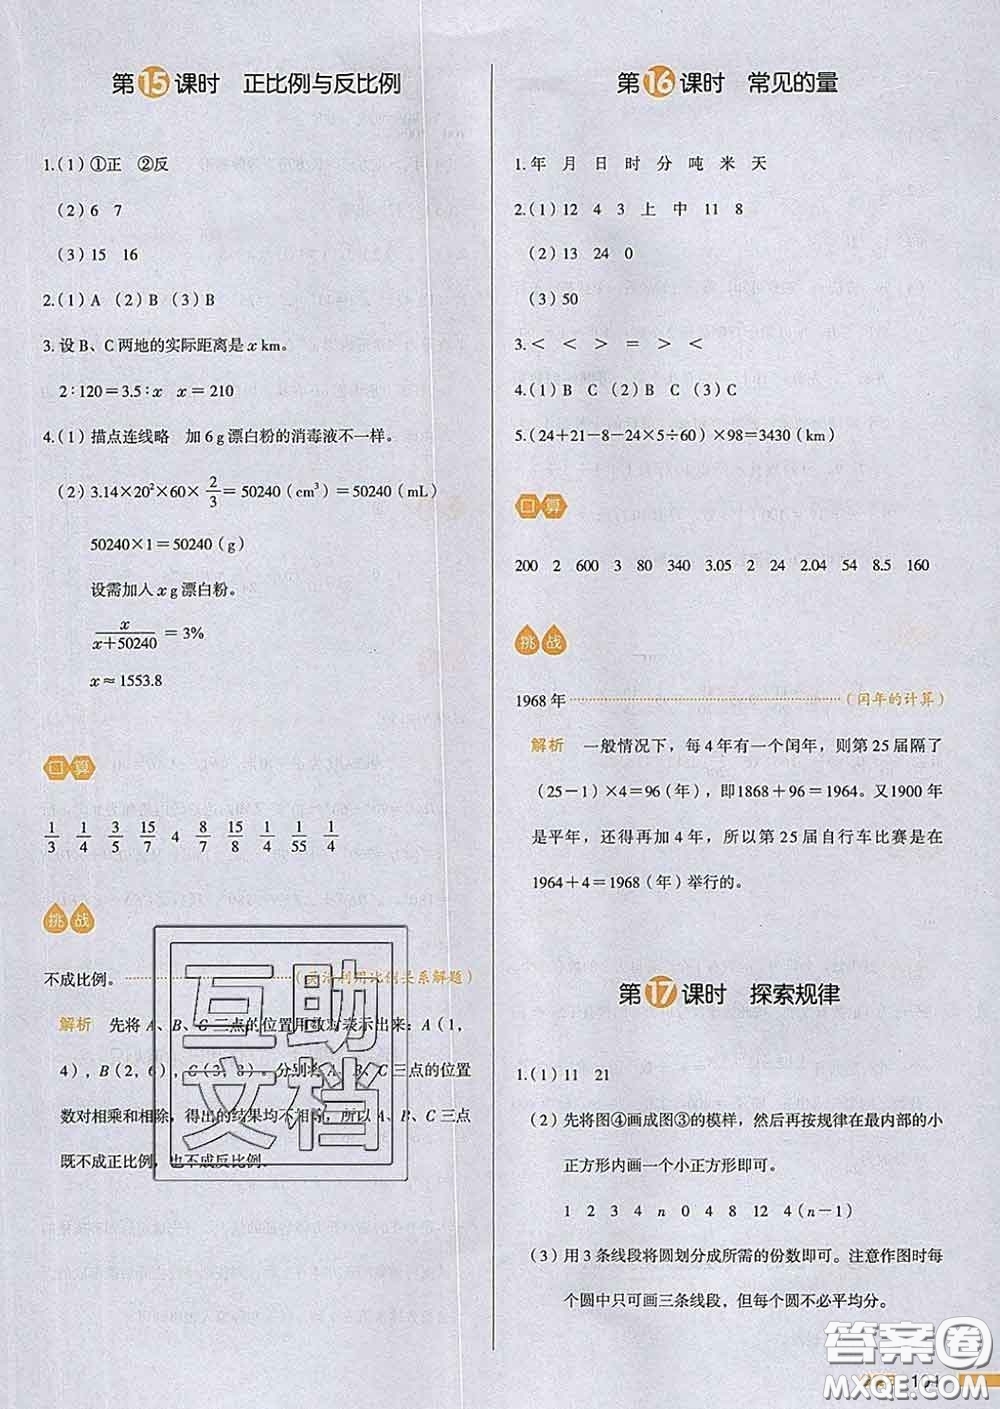 第15课时 正比例与反比例
1.(1)①正 ②反
(2)6 7
(3)15 16
2.(1)A (2)B (3)B
3.设B、C两地的实际距离是x km。
2:120=3.5:x x=210
4.(1)描点连线略 加6g漂白粉的消毒液不一样。
(2)3.14×20²×60×2/3=50240(cm³)=50240(mL)
50240×1=50240(g)
设需加入x g漂白粉。
x/(x+50240)=3%
x≈1553.8
口算
1/3 1/4 3/5 15/7 4 8/7 15/8 1/4 1/55 1/4
挑战
不成比例。
利用比例关系解题)
解析 先将A、B、C三点的位置用数对表示出来:A(1,
4),B(2,6),C(3,8)。分别将A、B、C三点的位置
数对相乘和相除,得出的结果均不相等,所以A、B、C三点
既不成正比例,也不成反比例。
第16课时 常见的量
1.年 月 日 时 分 吨 米 天
2.(1)12 4 3 上 中 11 8
(2)13 24 0
(3)50
3.< < > = > <
4.(1)B C (2)B C (3)C
5.(24+21-8-24×5÷60)×98=3430(km)
口算
200 2 600 3 80 340 3.05 2 24 2.04 54 8.5 160
挑战
1968年 (闰年的计算)
解析 一般情况下,每4年有一个闰年,则第25届隔了
(25-1)×4=96(年),即1868+96=1964。又1900年
是平年,还得再加4年,所以第25届自行车比赛是在
1964+4=1968(年)举行的。
第17课时 探索规律
1.(1)11 21
(2)先将图④画成图③的模样,然后再按规律在最内部的小
正方形内画一个小正方形即可。
1 2 3 4 n 0 4 8 12 4(n-1)
(3)用3条线段将圆划分成所需的份数即可。注意作图时每
个圆中只可画三条线段,但每个圆不必平均分。
互助
文档
答案圈
MXQE.COM